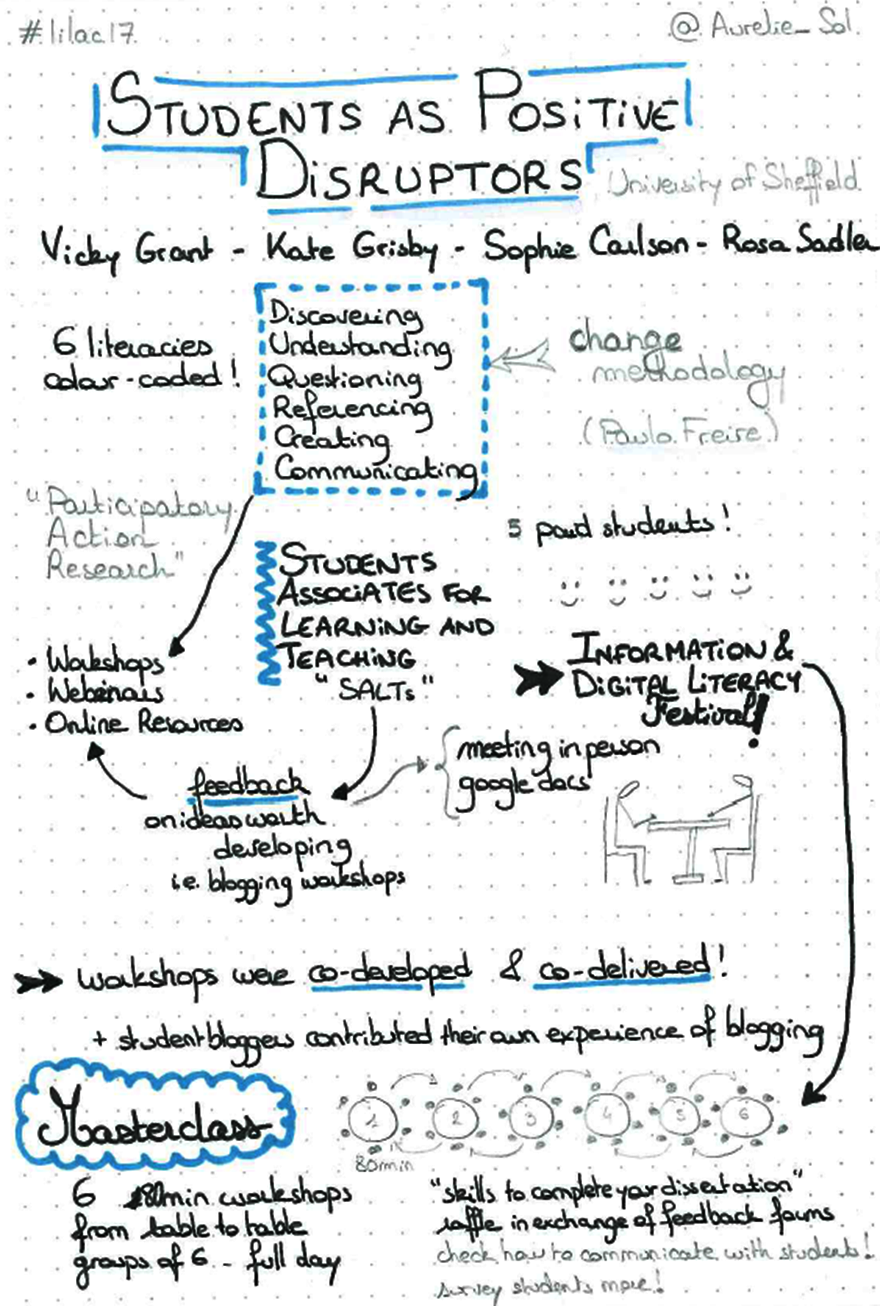 #lilac17
@Aurelie_Sol
STUDENTS AS POSITIVE
DISRUPTORS
University of Sheffield
Vicky Grant - Kate Grisby - Sophie Caulson - Rosa Sadler
6 literacies
colour-coded!
Discovering
Understanding
Questioning
Referencing
Creating
Communicating
change
methodology
(Paulo Freire)
"Participatory
Action
Research"
5 paid students!
STUDENTS
ASSOCIATES FOR
LEARNING AND
TEACHING
"SALTs"
INFORMATION &
DIGITAL LITERACY
Festival!
• Workshops
• Webinars
• Online Resources
feedback
on ideas worth
developing
i.e. blogging workshops
meeting in person
google docs
workshops were co-developed & co-delivered!
+ student bloggers contributed their own experience of blogging
Masterclass
1 2 3 4 5 6
80min
6 80min workshops
from table to table
groups of 6 - full day
"skills to complete your dissertation"
raffle in exchange of feedback forms
check how to communicate with students!
survey students more!